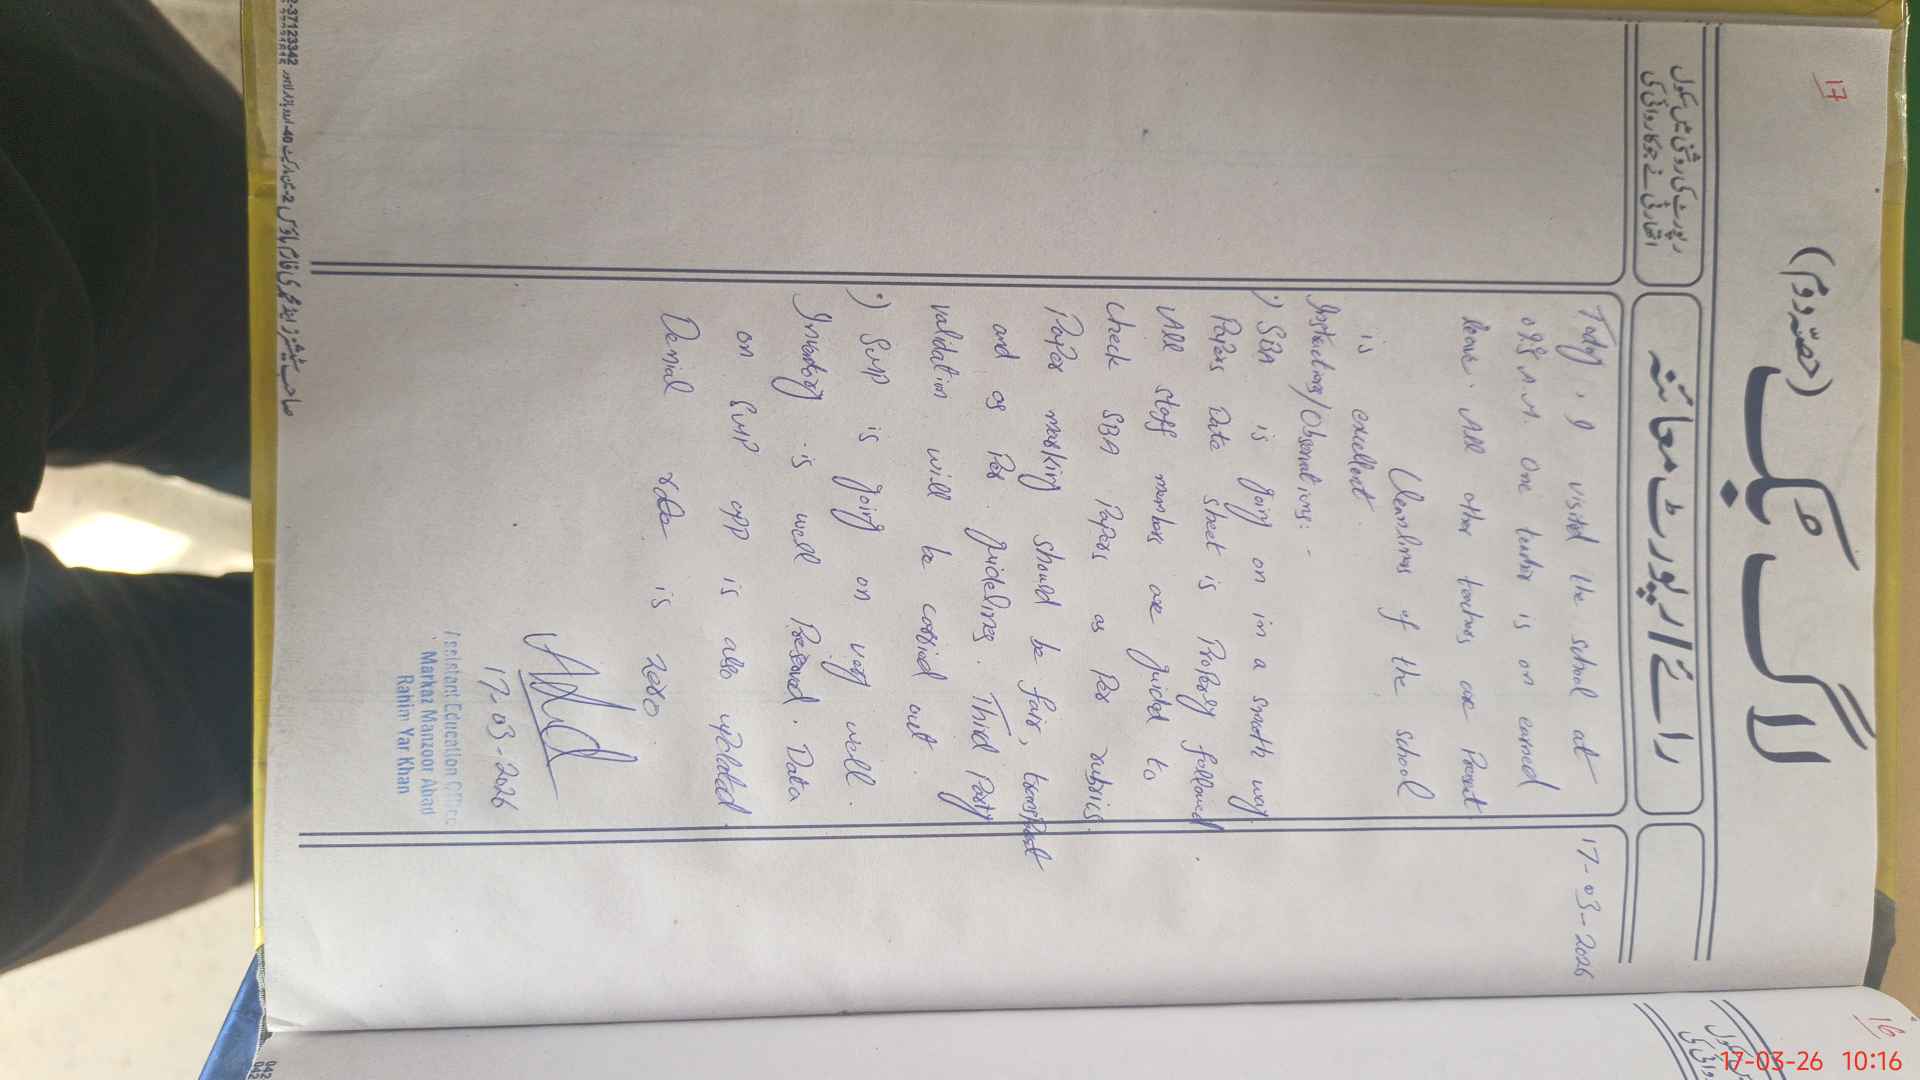 17
لاگ بک (حصہ دوم)
رائے / رپورٹ معائنہ
رپورٹ کی روشنی میں سکول
اتھارٹی نے جو کارروائی کی
17-03-2026
Today, I visited the school at
A.M. One teacher is on earned
leave. All other teachers are Present
Cleanliness of the school
is excellent.
Instructions/Observations:-
•) SBA is going on in a smooth way.
Papers Date sheet is Properly followed.
All staff members are guided to
check SBA Papers as Per rubrics.
Paper marking should be fair, transparent
and as Per guidelines. Third Party
validation will be carried out.
•) SMP is going on very well.
Inventory is well Preserved. Data
on SMP app is also updated.
is zero
17-03-2026
Assistant Education Officer
Markaz Manzoor Abad
Rahim Yar Khan
16
17-03-26 10:16